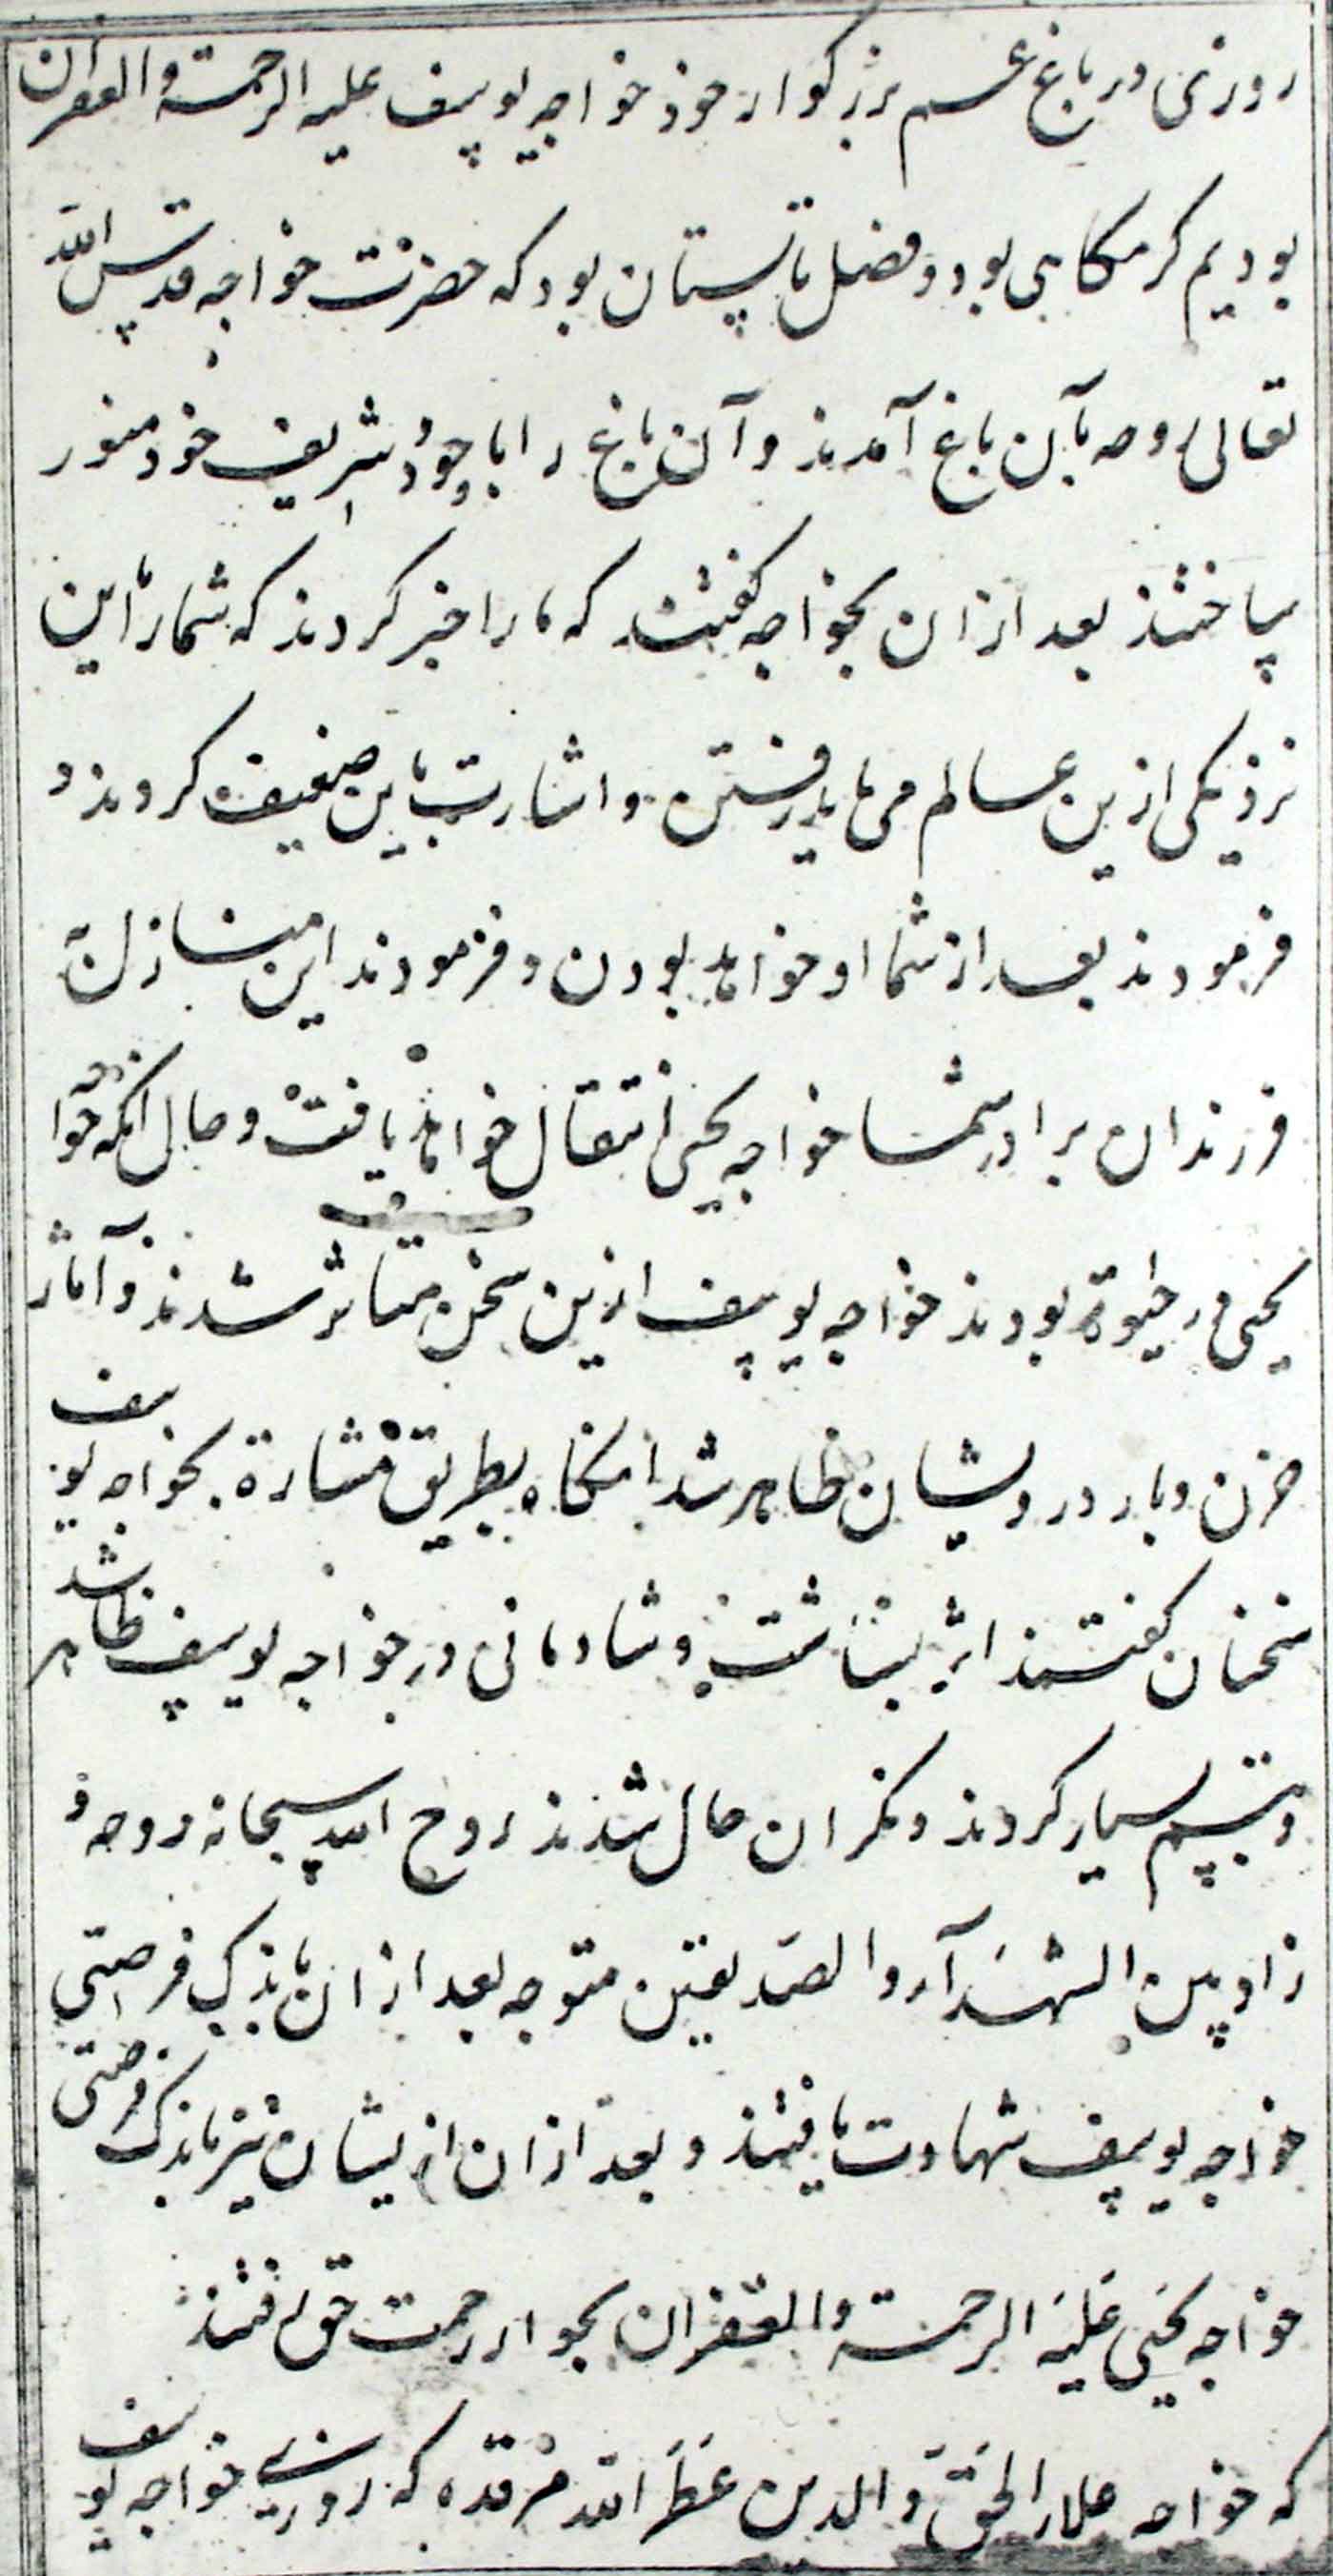 روزی در باغ عم بزرکوار خوذ خواجه یوسف علیه الرحمة والغفران
بودیم کرمکاهی بود و فصل تابستان بود که حضرت خواجه قدس الله
تعالی روحه بآن باغ آمدند و آن باغ را با وجود شریف خود منور
ساختند بعد ازان بخواجه کفتند که ما را خبر کردند که شما را این
نزدیکی ازین عالم می باید رفتن و اشارت باین ضعیف کردند و
فرمودند بعد از شما او خواهد بودن و فرمودند این منازل به
فرزندان برادر شما خواجه یحیی انتقال خواهد یافت و حال آنکه خواجه
یحیی در حیوة بودند خواجه یوسف ازین سخن متاثر شدند و آثار
حزن و بار در ویشان ظاهر شد آنکاه بطریق مشارة بخواجه یوسف
سخنان کفتند اثر بشاشت و شادمانی در خواجه یوسف ظاهر شد
و تبسم بسیار کردند و نکران حال شدند روح الله سبحانه روحه و
زاد بین الشهدآء والصدیقین فتوحه بعد ازان باندک فرصتی
خواجه یوسف شهادت یافتند و بعد ازان از یشان نیز باندک فرصتی
خواجه یحیی علیه الرحمة والغفران بجوار رحمت حق رفتند
که خواجه علاء الحق والدین عطر الله مرقده که روزی خواجه یوسف